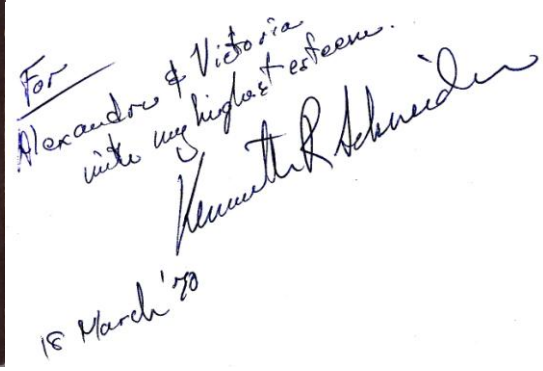 For
Alexandre & Victoria
with my highest esteem.
Kenneth R Schneider
18 March '70